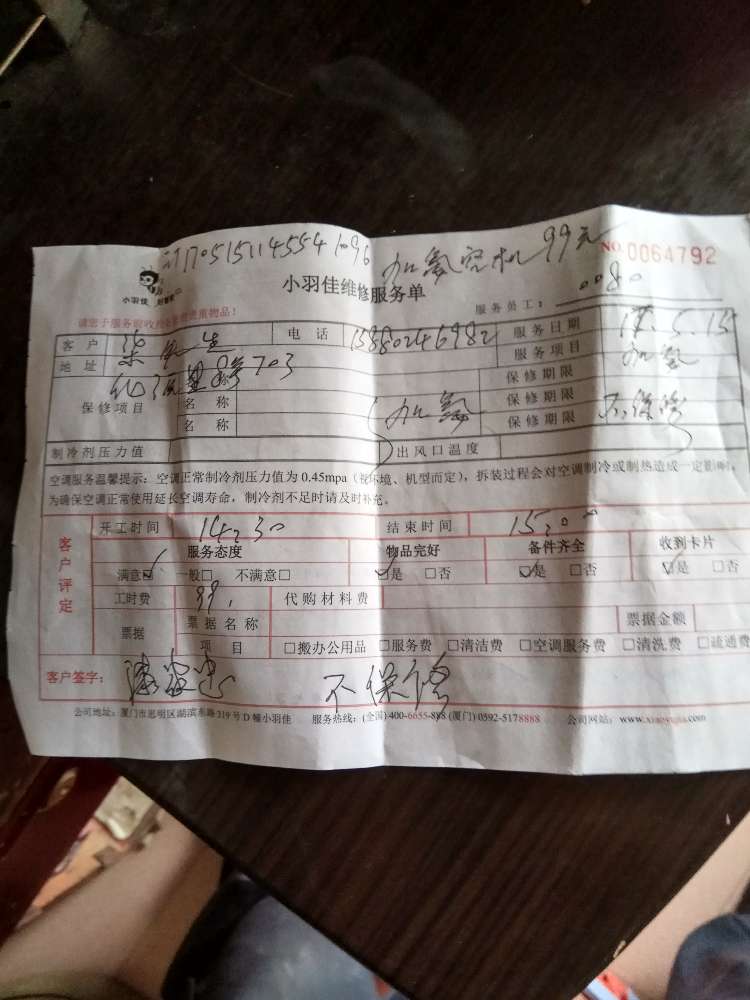 170515114554 1096 加氟定机 99元
NO. 0064792
小羽佳
小羽佳维修服务单
服务员工: 0080
请您于服务前收 物品!
客户 先生 电话 15880246982 服务日期 17.5.15
地址 703 服务项目 加氟
保修项目 名称 加氟 保修期限
名称 保修期限 不保修
名称 保修期限
制冷剂压力值 出风口温度
空调服务温馨提示: 空调正常制冷剂压力值为 0.45mpa (视环境、机型而定), 拆装过程会对空调制冷或制热造成一定影响,
为确保空调正常使用延长空调寿命, 制冷剂不足时请及时补充。
客户评定
开工时间 14:30 结束时间 15:00
服务态度 物品完好 备件齐全 收到卡片
满意☑ 一般□ 不满意□ ☑是 □否 ☑是 □否 ☑是 □否
工时费 99. 代购材料费
票据 票据名称 票据金额
项目 □搬办公用品 □服务费 □清洁费 □空调服务费 □清洗费 □疏通费
客户签字: 不保修
公司地址: 厦门市思明区湖滨东路 319 号 D 幢小羽佳 服务热线: (全国) 400-6655-888 (厦门) 0592-5178888 公司网站: www.xiaoyujia.com